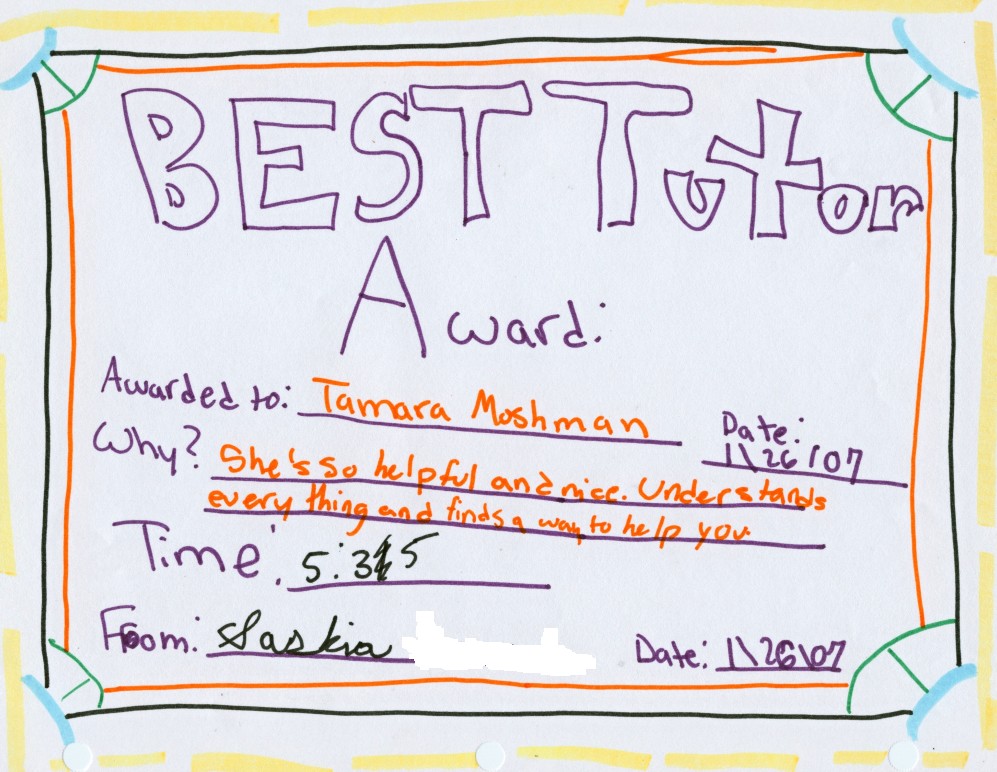 BEST Tutor
Award:
Awarded to: Tamara Moshman
Date:
11\26/07
Why? She's so helpful and nice. Understands
every thing and finds a way to help you.
Time: 5:35
From: Saskia
Date: 11\26\07